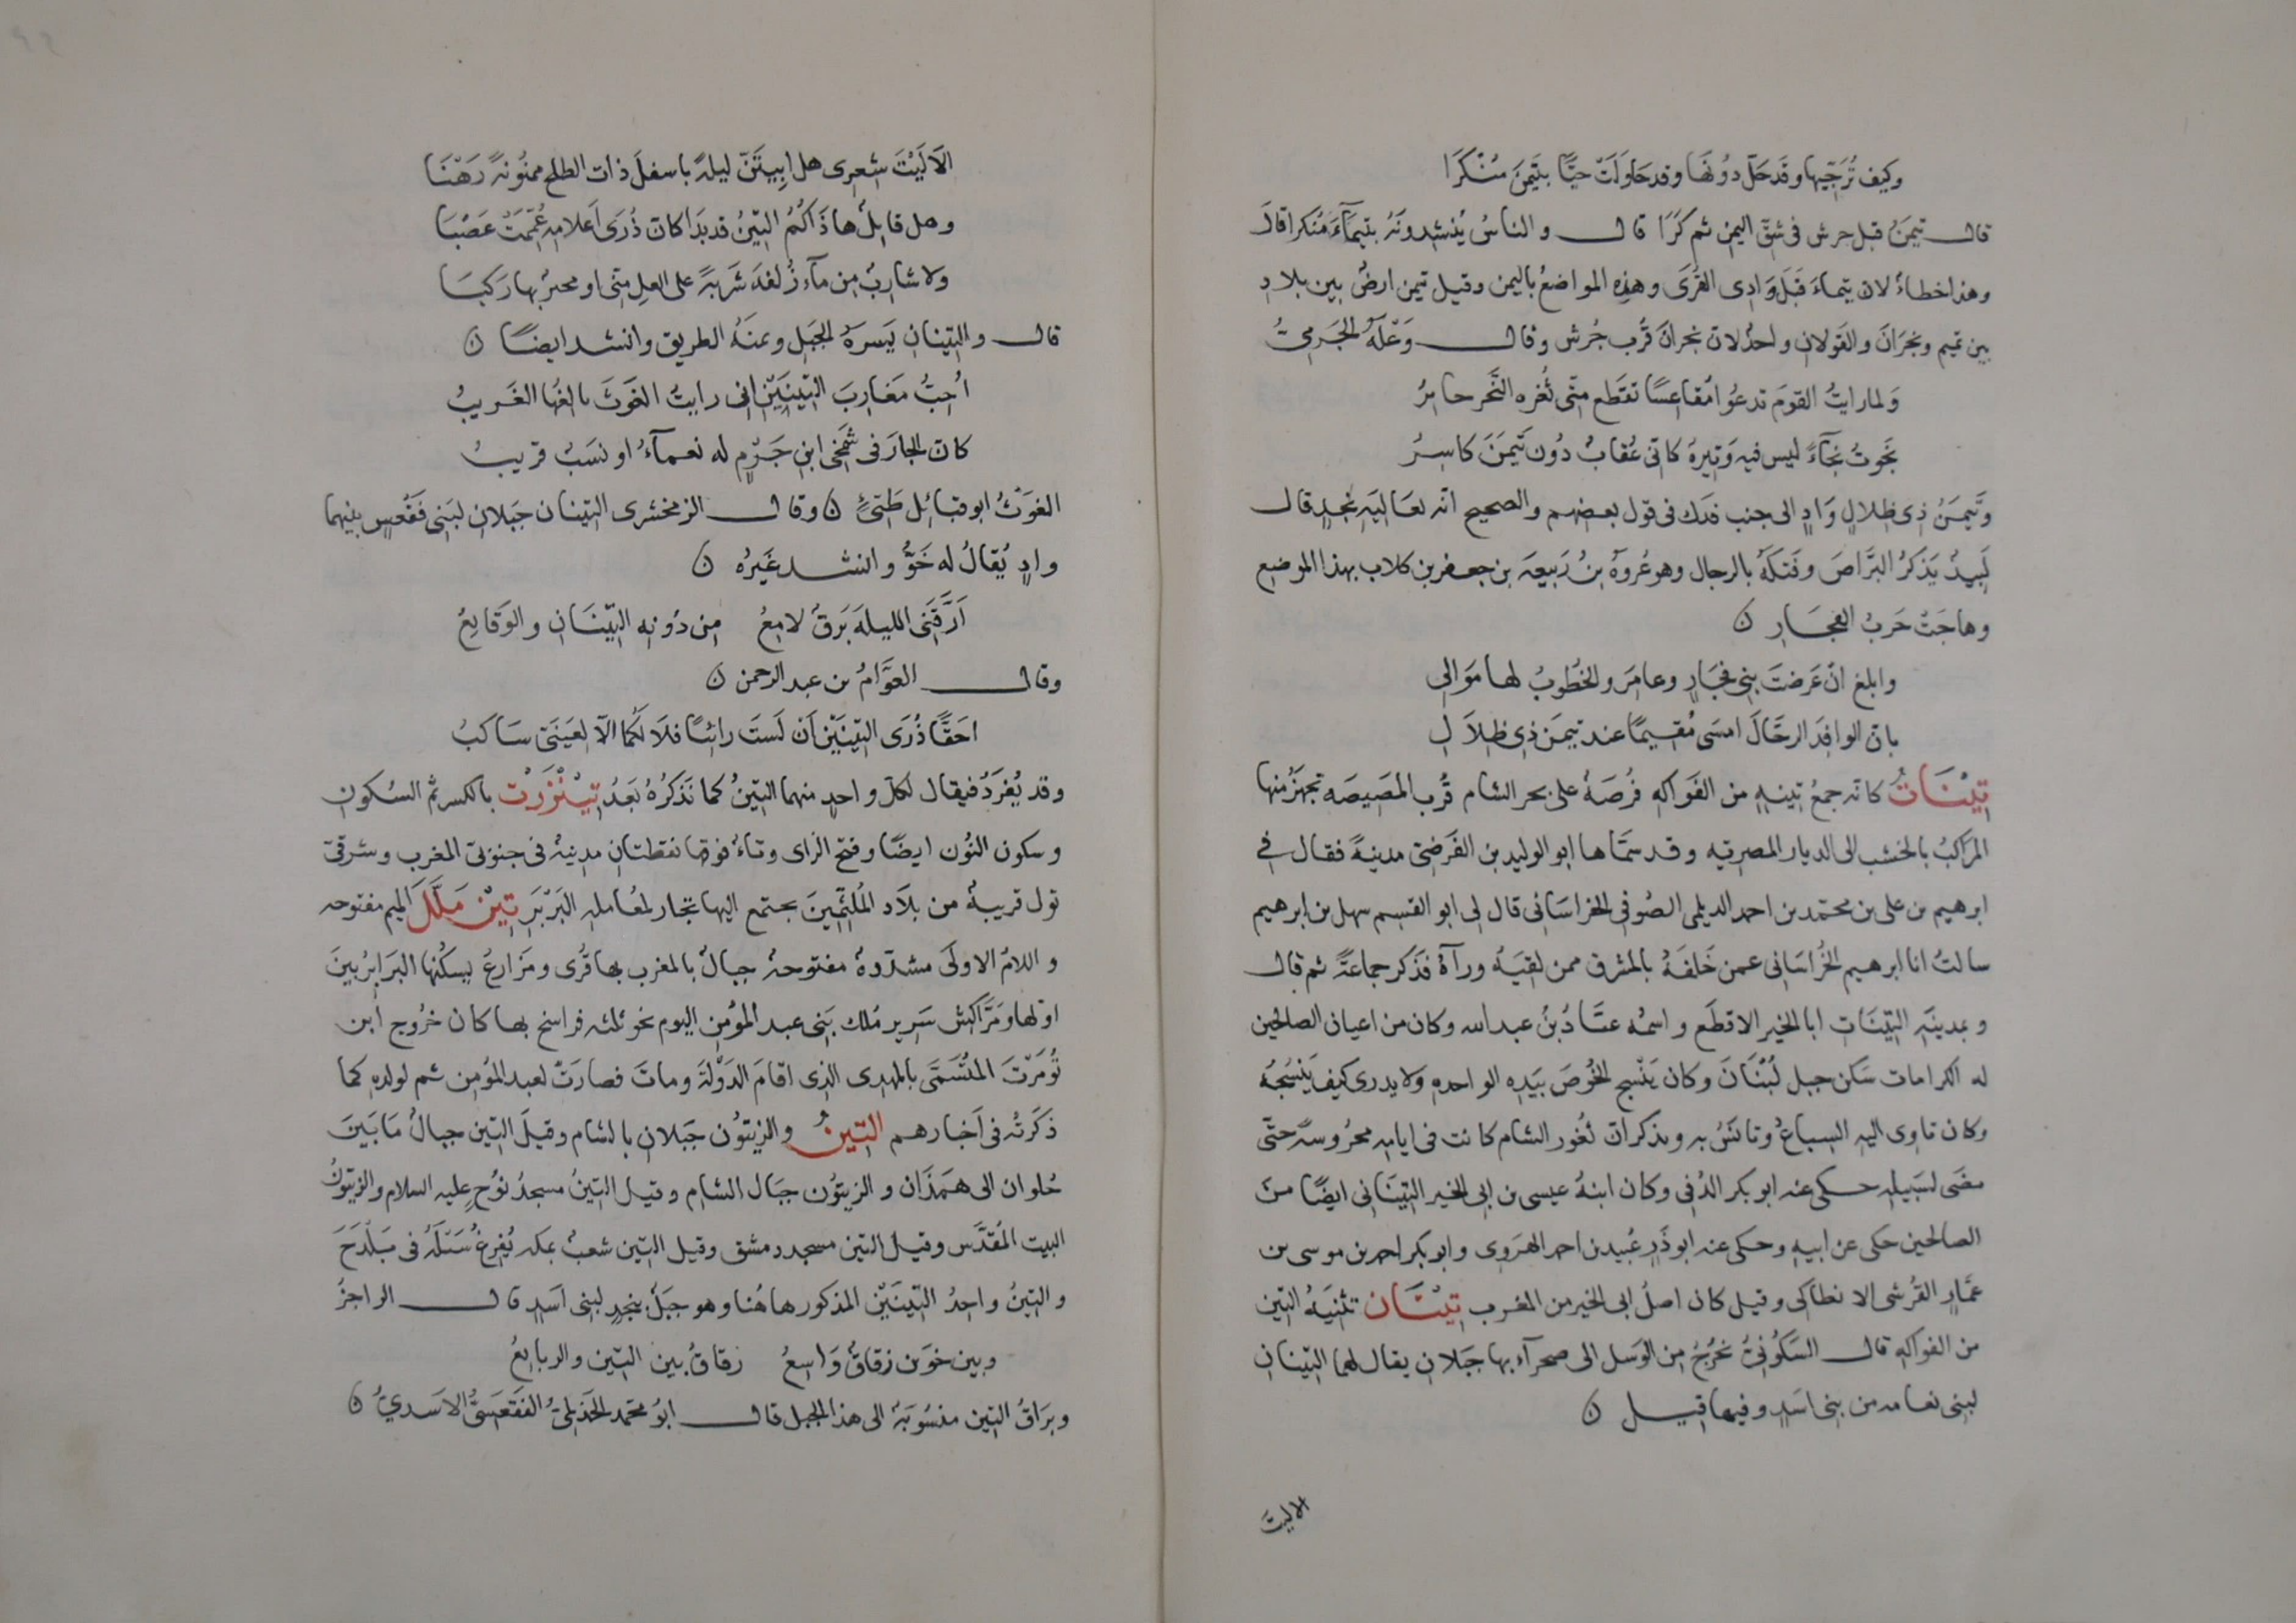 وكيف تُرَجّيها وقَد حَلّ دُونَها وقد حَاوَلَتْ حيًّا بتَيمَنَ مُنْكَرَا
قال تيمَنُ قبل جرش فى شقّ اليمن ثم كَرًا قال والناسُ يُنشدونَهُ بتَيمَآءَ مُنكرا قالَ
وهذا خطاءٌ لان تيماءَ قبَلَ وَادِى القُرَى وهذِه المواضعُ باليمن وقيل تيمن ارضٌ بين بلادِ
بين تميم ونجرَانَ والقَولانِ واحدٌ لانّ نجرانَ قُرب جُرش وقال وَعْلَهُ الجَرمِىّ
وَلما رايتُ القومَ تدعُوا مُقاعِسًا تقَطع مِنّى ثُغره النَّحر حايرُ
نجَوتُ نجآءً ليس فيه وَتيرةٌ كانّى عُقابٌ دُون تَيْمَنَ كاسِرُ
وتَيمَنُ ذِى ظلالٍ وَادٍ الى جنب فدَك فى قول بعضِهم والصحيح انّه بعَاليَهِ نجدٍ قال
لَبِيدٌ يَذكرُ البَرّاضَ وفَتكَهُ بالرحال وهو عُروَهُ بنُ رَبيعَه بن جعفر بن كلاب بهذا الموضع
وهاجَتْ حَربُ الفِجَارِ ن
وابلغ انْ عَرضتَ بنى فجَارٍ وعامَر والخُطُوبُ لها مَوَالِى
بانّ الوافِدَ الرحّالَ امسَى مُقيمًا عند تَيمَن ذِى ظِلاَلِ
تِيْنَاتُ كانّه جمعُ تينهٍ من الفَواكهِ فُرضَهٌ على بحر الشام قُرب المَصيصَه تجهَزُ منها
المرَاكبُ بالخشب الى الديار المصريّه وقد سَمّاها ابو الوليد بن الفَرَضىّ مدينهً فقال فى
ابرهيم بن على بن محمّد بن احمد الديلمى الصُوفى الخراسَانى قال لى ابو القسِم سهل بن ابرهيم
سالتُ انا ابرهيم الخُراسَانى عمن خَلفَهُ بالمشرق ممن لقيَهُ ورآهُ فذَكر جماعَةً ثم قال
وبمدينَهِ التيّنَاتِ ابا الخير الاقطَع واسمُه عبَّادُ بنُ عبد الله وكان من اعيان الصالحين
له اكرامات سَكن جبل لُبْنَانَ وكان يَنْسِج الخُوصَ بيَدِه الواحدهِ ولا يدرى كيف يَنْسِجُهُ
وكان تاوِى اليه السِباعُ وتانَسُ به ويذكر انّ ثغور الشام كانت فى ايامِه محرُوسَةً حتّى
مضَى لسَبيلهِ حكى عنه ابو بكر الدُقى وكان ابنهُ عيسى بن ابى الخير التينَاتى ايضًا منَ
الصالحين حكى عن ابيهِ وحكى عنه ابو ذَرٍ عُبيد بن احمد الهَرَوِى وابو بكر احمد بن موسى بن
عمَّارٍ القُرشى الانطاكى وقيل كان اصلُ ابى الخير من المغرب تِيْنَان تثنيَهُ التين
من الفواكهِ قال السَكُونىُّ تخرُجُ من الوَشل الى صحرآء بها جبَلانِ يقال لهما التينانِ
لبنِى نعامه من بنى اسَدٍ وفيها قيل ن
الاليتَ
الاَ لَيْتَ شعِرى هل ابِيتَنّ ليلةً باسفلَ ذات الطلح ممنُونةً رَهْبَا
وهل قابِلٌ هاذَاكُمُ التينُ قد بَدَا كانّ ذُرَى اَعلامِه عُمّمَتْ عَصْبَا
ولا شارِبٌ مِن مآءِ زُلفهَ شَربةً على العلِ مِنّى او مجيرٌ بها رَكبَا
قال والتينانِ يَسرهَ للجبَلِ ويمنَهُ الطريق وانشد ايضًا ن
اُحِبُّ مَغارِبَ التِّينَيْنِ انى رايتُ الغَوثَ بالفُها الغَريبُ
كانّ الجارَ فى شَمَخى ابنِ جَرْمٍ له نعمآءُ او نسَبٌ قريبُ
الغَوْثُ ابو قبائِل طَىّئٍ ن وقال الزمخشرى التينان جَبلانِ لبَنِى فَقْعسٍ بينهما
وادٍ يُقالُ له خَوٌّ وانشد غَيرُه ن
اَرَّقَنى الليلهَ بَرقٌ لامِعُ من دُونِهِ التِّيْنَانِ والوَقايعُ
وقال العَوَّامُ بن عبد الرحمن ن
احَقًّا ذُرَى التِّينَيْنِ اَنْ لَستَ رائِيًا فلاَ لَكُما الاّ لعَينَىّ سَاكبُ
وقد يُفرَدُ فيقال لكلّ واحدٍ منهما التينُ كما نَذكرُهُ بَعدُ تِيْنْزَرْت بالكسر ثم السُكونِ
وسكون النُون ايضًا وفتح الزاى وتاءٌ فوقها نقطتانِ مدينهٌ فى جنوبىّ المغرب وشرقىّ
نول قريبهٌ من بلاد المُلثّمينَ يجتمع اليها تجار لمُعَاملهِ البَرْبَرَ تِيْنَ مَلَّلَ الميم مفتوحه
واللامُ الاولَى مشدّدهٌ مفتوحهٌ جبالٌ بالمغرب بها قُرى ومَزارِعُ يسكُنها البَرَابرُ بَينَ
اوّلها ومَرّاكِش سَريرِ مُلك بَنى عبد المؤمِن اليوم نحو ثلثه فراسخ بها كان خرُوج ابن
تُومَرْتَ المُتَسَمَّى بالمهدى الذِى اقامَ الدَوْلَةَ وماتَ فصارَتْ لعبد المُؤمِن ثم لولدهِ كما
ذكَرتُه فى اَخبارهم التِينُ والزيتوُن جَبَلانِ بالشام وقيلَ التين جبالٌ مَا بَينَ
حُلوان الى همَذَان والزيتوُن جبَال الشام وقيل التينُ مسجدُ نُوْحٍ عليه السلام والزيتونُ
البيت المُقدَّس وقيل التين مسجد دمشق وقيل التين شعبٌ بمكه يُفرِغُ سَيْلَهُ فى بَلْدَحَ
والتِينُ واحِدُ التِّينَيْنِ المذكور هاهُنا وهو جبَلٌ بنجدٍ لبنِى اسَدٍ قال الراجزُ
وبين خوّين زقاقٌ وَاسِعُ زقاقٌ بين التين والربايعُ
وبرَاقُ التين منسُوبَهٌ الى هذا الجبل قال ابُو محمّد الحَذلمىُّ الفَقعَسىُّ الاسَدىّ ن